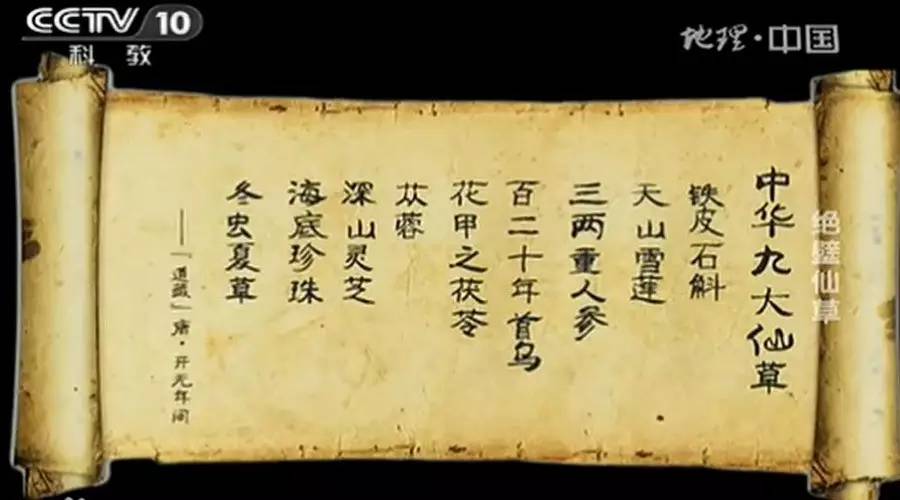 CCTV 10
科教
地理·中国
绝壁仙草
中华九大仙草
铁皮石斛
天山雪蓮
三两重人参
百二十年首乌
花甲之茯苓
苁蓉
深山灵芝
海底珍珠
冬虫夏草
——「道藏」唐·开元年间